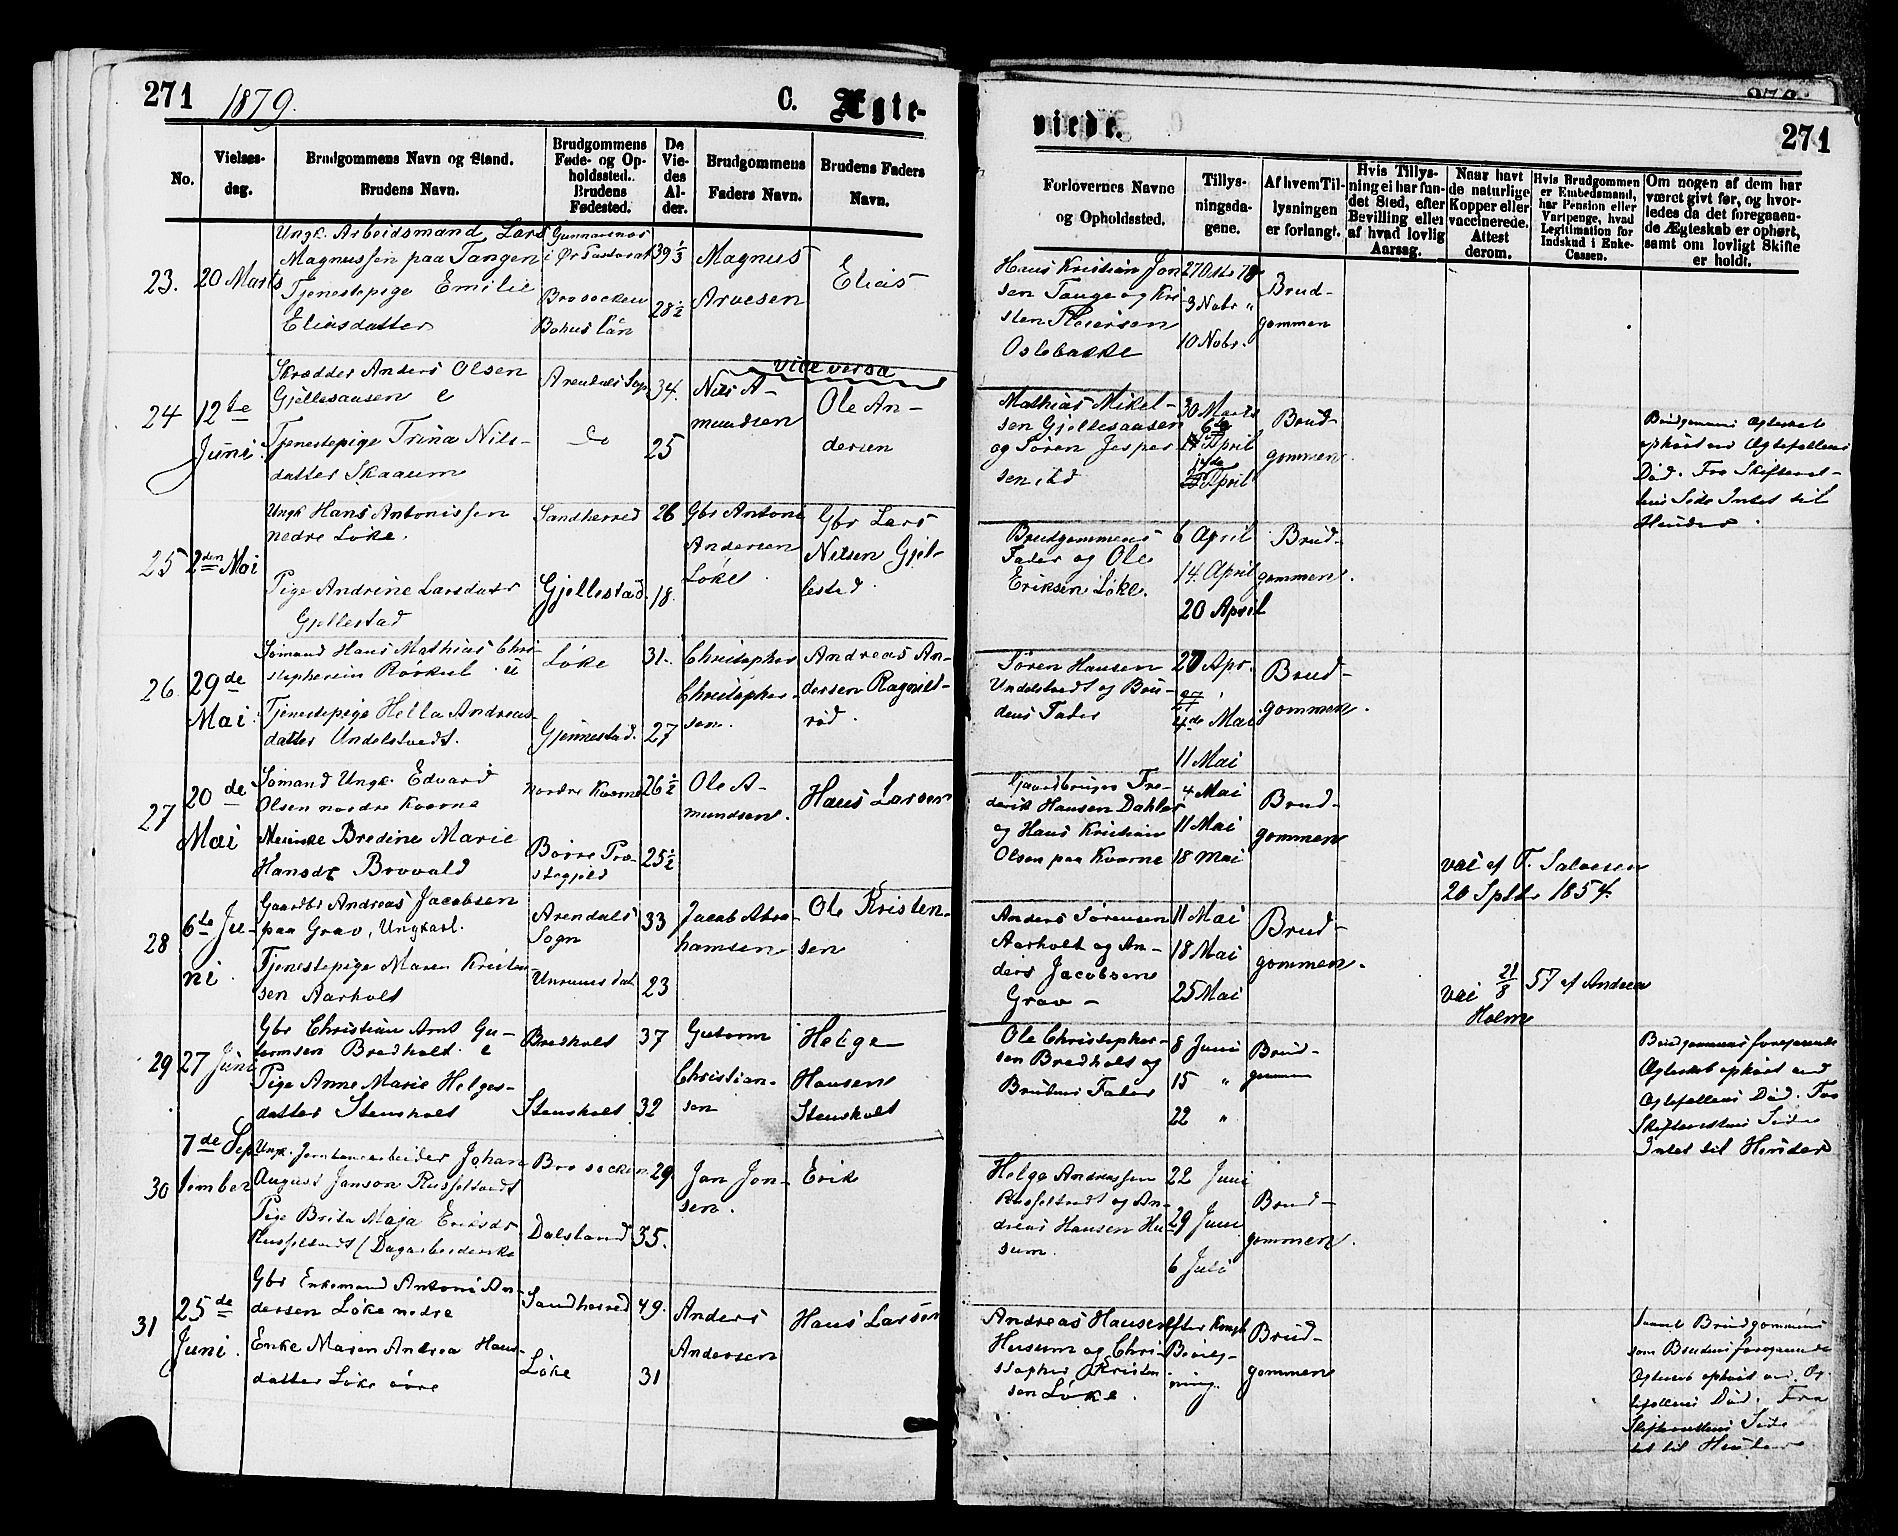 271
1879.
C. Ægte-
No.
Vielses-
dag.
Brudgommens Navn og Stand.
Brudens Navn.
Brudgommens
Føde- og Op-
holdssted.
Brudens
Fødested.
De
Vie-
des
Al-
der.
Brudgommens
Faders Navn.
Brudens Faders
Navn.
23.
20 Marts
Ungk. Arbeidsmand Lars
Magnussen paa Tangen
Tjenestepige Emilie
Eliasdatter
39 1/2
Brosocken
Bohus län
28 1/2
Magnus
Arvesen
Elias
24
12te
Juni.
Skrædder Anders Olsen
Gjellesaasen e
Tjenestepige Trina Nils-
datter Skaaum
Arendals Sogn
do
34.
25
vice versa
Nils A-
mundsen
Ole An-
dersen
25
2den Mai
Ungk Hans Antonissen
nedre Løke.
Pige Andrine Larsdatr
Gjellestad
Sandherred
Gjellestad.
26
18.
Gbr Antoni
Andersen
Løke.
Gbr Lars
Nilsen Gjel-
lestad.
26.
29de
Mai.
Sømand Hans Mathias Chri-
stophersen
Tjenestepige Hella Andreas-
datter Undelstvedt.
Løke
Gjennestad.
31.
27
Christopher
Christopher-
sen.
Andreas An-
dersen Ragnill-
rød.
27
20de
Mai
Sømand Ungk. Edvard
Olsen nordre Kverne
Bredine Marie
Hansdr Brovald
nordre Kverne
Borre Præ-
stegjeld
26 1/2
25 1/2
Ole A-
mundsen.
Hans Larsen
28
6te Ju-
ni.
Gaardbr Andreas Jacobsen
paa Grav, Ungkarl.
Tjenestepige Maren Kristen-
sen Aarholt
Arendals
Sogn
33
23
Jacob Abra-
hamsen
Ole Kristen-
sen
29
27 Juni
Gbr Christian Arnt Gu-
tormsen Bredholt. e
Pige Anne Marie Helges-
datter Stensholt
Bredholt
Stensholt
37
32
Gutorm
Christian-
sen
Helge
Hansen
Stensholt
30
7de Sep-
tember
Ungk. Jernbanearbeider Johan
August Janson
Pige Brita Maja Eriksdr
(Dagarbeiderske
Brosocken
Dalsland
29
35.
Jan Jon-
sen.
Erik
31
25de
Juni.
Gbr Enkemand Antoni An-
dersen Løke nedre
Enke Maren Andrea Hans-
datter Løke øvre
Sandherred
Løke
49.
31
Anders
Andersen
Hans Larsen
viede.
271
Forlovernes Navne
og Opholdssted.
Tillys-
ningsda-
gene.
Af hvem Til-
lysningen
er forlangt.
Hvis Tillys-
ning ei har fun-
det Sted, efter
Bevilling eller
af hvad lovlig
Aarsag.
Naar havt
de naturlige
Kopper eller
vaccinerede.
Attest
derom.
Hvis Brudgommen
er Embedsmand,
har Pension eller
Vartpenge, hvad
Legitimation for
Indskud i Enke-
Cassen.
Om nogen af dem har
været givt før, og hvor-
ledes da det foregaaen-
de Ægteskab er ophørt,
samt om lovligt Skifte
er holdt.
Hans Kristian Jon
sen Tange og Kri
sten
Oslebakke
27 Okt 78
3 Nobr "
10 Nobr.
Brud-
gommen
Mathias Mikel-
sen Gjellesaasen
og Søren Jesper
sen ibd
30 Marts
6te
14 April
April
Brud-
gommen.
Brudgommens Ægteskab
ophørt ved Ægtefellens
Død. Fra Skifteret-
tens Side Intet til
Hinder.
Brudgommens
Fader og Ole
Eriksen Løke.
6 April
14 April
20 April
Brud-
gommen.
Søren Hansen
Undelstvedt og Bru-
dens Fader
27 Apr.
4de Mai
11 Mai
Brud-
gommen.
Gaardbruger Fre-
derik Hansen Dahler
og Hans Kristian
Olsen paa Kverne
4 Mai
11 Mai
18 Mai
Brud-
gommen
vac af T. Salvesen
20 Septbr 1854.
Anders Sørensen
Aarholt og An-
ders Jacobsen
Grav -
11 Mai
18 Mai
25 Mai
Brud-
gommen.
vac 21/8 57 af Andrea
Holm
Ole Christopher-
sen Bredholt og
Brudens Fader
8 Juni
15 "
22 "
Brud-
gommen
Brudgommens foregaaende
Ægteskab ophørt ved
Ægtefellens Død. Fra
Skifterettens Side
Intet til Hinder
Helge Andreassen
og An-
dreas Hansen Hu-
sum.
22 Juni
29 Juni
6 Juli
Brud-
gommen.
Andreas Hansen
Husum og Chri-
stopher Kristen
sen Løke.
efter Kongl
Bevilg-
ning.
Brud-
gommen
Saavel Brudgommens
som Brudens foregaaende
Ægteskab ophørt ved Æg-
tefellens Død. Fra
Skifterettens Side
tet til Hinder